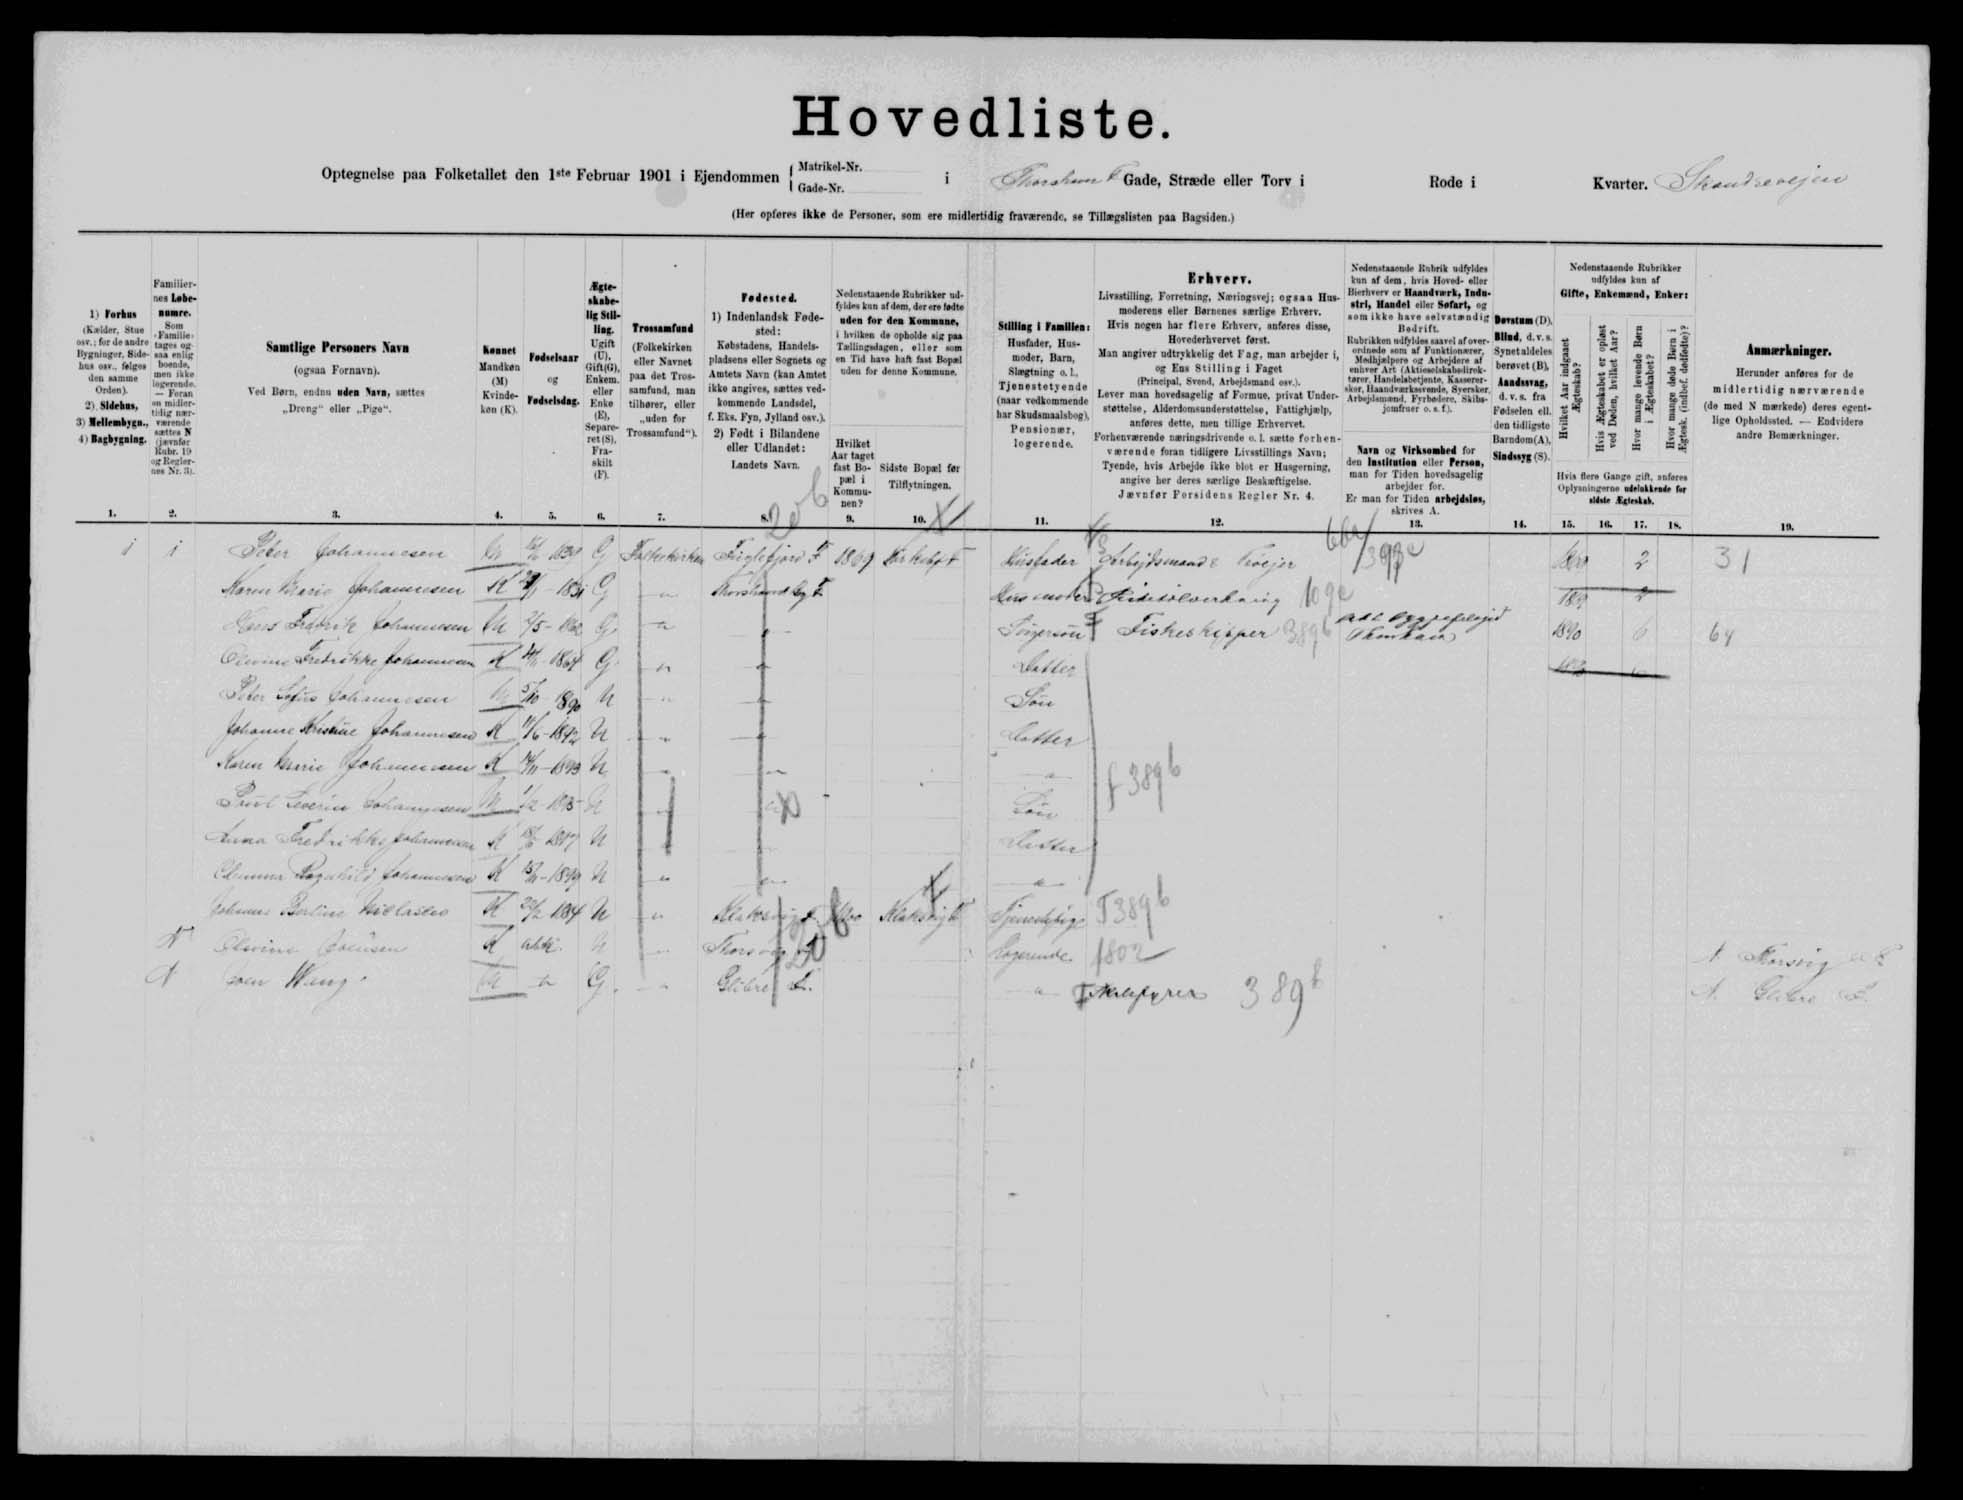 Hovedliste.
Optegnelse paa Folketallet den 1ste Februar 1901 i Ejendommen { Matrikel-Nr. Gade-Nr. i Thorshavn F Gade, Stræde eller Torv i Rode i Kvarter.
(Her opføres ikke de Personer, som ere midlertidig fraværende, se Tillægslisten paa Bagsiden.)
1) Forhus
(Kælder, Stue
osv.; for de andre
Bygninger, Side-
hus osv., følges
den samme
Orden).
2) Sidehus,
3) Mellembygn.,
4) Bagbygning.
Familier-
nes Løbe-
numre.
Som
Familie
tages og-
saa enlig
boende,
men ikke
logerende.
— Foran
en midler-
tidig nær-
værende
sættes N
(jævnfør
Rubr. 19
og Regler-
nes Nr. 3).
Samtlige Personers Navn
(ogsaa Fornavn).
Ved Børn, endnu uden Navn, sættes
„Dreng“ eller „Pige“.
Kønnet
Mandkøn
(M)
Kvinde-
køn (K).
Fødselsaar
og
Fødselsdag.
Ægte-
skabe-
lig Stil-
ling.
Ugift
(U),
Gift(G),
Enkem.
eller
Enke
(E),
Separe-
ret (S),
Fra-
skilt
(F).
Trossamfund
(Folkekirken
eller Navnet
paa det Tros-
samfund, man
tilhører, eller
„uden for
Trossamfund“).
Fødested.
1) Indenlandsk Føde-
sted:
Købstadens, Handels-
pladsens eller Sognets og
Amtets Navn (kan Amtet
ikke angives, sættes ved-
kommende Landsdel,
f. Eks. Fyn, Jylland osv.).
2) Født i Bilandene
eller Udlandet:
Landets Navn.
Nedenstaaende Rubrikker ud-
fyldes kun af dem, der ere fødte
uden for den Kommune,
i hvilken de opholde sig paa
Tællingsdagen, eller som
en Tid have haft fast Bopæl
uden for denne Kommune.
Hvilket
Aar taget
fast Bo-
pæl i
Kommu-
nen?
Sidste Bopæl før
Tilflytningen.
Stilling i Familien:
Husfader, Hus-
moder, Barn,
Slægtning o. l.,
Tjenestetyende
(naar vedkommende
har Skudsmaalsbog),
Pensionær,
logerende.
Erhverv.
Livsstilling, Forretning, Næringsvej; ogsaa Hus-
moderens eller Børnenes særlige Erhverv.
Hvis nogen har flere Erhverv, anføres disse,
Hovederhvervet først.
Man angiver udtrykkelig det Fag, man arbejder i,
og Ens Stilling i Faget
(Principal, Svend, Arbejdsmand osv.).
Lever man hovedsagelig af Formue, privat Under-
støttelse, Alderdomsunderstøttelse, Fattighjælp,
anføres dette, men tillige Erhvervet.
Forhenværende næringsdrivende o. l. sætte forhen-
værende foran tidligere Livsstillings Navn;
Tyende, hvis Arbejde ikke blot er Husgerning,
angive her deres særlige Beskæftigelse.
Jævnfør Forsidens Regler Nr. 4.
Nedenstaaende Rubrik udfyldes
kun af dem, hvis Hoved- eller
Bierhverv er Haandværk, Indu-
stri, Handel eller Søfart, og
som ikke have selvstændig
Bedrift.
Rubrikken udfyldes saavel af over-
ordnede som af Funktionærer,
Medhjælpere og Arbejdere af
enhver Art (Aktieselskabsdirek-
tører, Handelsbetjente, Kasserer-
sker, Haandværkssvende, Syersker,
Arbejdsmænd, Fyrbødere, Skibs-
jomfruer o. s. f.).
Navn og Virksomhed for
den Institution eller Person,
man for Tiden hovedsagelig
arbejder for.
Er man for Tiden arbejdsløs,
skrives A.
Døvstum (D).
Blind, d. v. s.
Synet aldeles
berøvet (B),
Aandssvag,
d. v. s. fra
Fødselen ell.
den tidligste
Barndom (A),
Sindssyg (S).
Nedenstaaende Rubrikker
udfyldes kun af
Gifte, Enkemænd, Enker:
Hvilket Aar indgaaet Ægteskab?
Hvis Ægteskabet er opløst ved Døden, hvilket Aar?
Hvor mange levende Børn i Ægteskabet?
Hvor mange døde Børn i Ægtesk. (indbef. dødfødte)?
Hvis flere Gange gift, anføres
Oplysningerne udelukkende for
sidste Ægteskab.
Anmærkninger.
Herunder anføres for de
midlertidig nærværende
(de med N mærkede) deres egent-
lige Opholdssted. — Endvidere
andre Bemærkninger.
1. 2. 3. 4. 5. 6. 7. 8. 9. 10. 11. 12. 13. 14. 15. 16. 17. 18. 19.
20b
i i Peter Johannesen M G Folkekirken Fuglefjord F 1869 Kirkebø F Husfader Arbejdsmand & Trøjer 2 31
Karen Marie Johannesen K G Husmoder 109e 2
Hans Fredrik Johannesen M 2/5-1862 G Fiskeskipper 389b Thorshavn 1890 6 64
Olevine Fredrikke Johannesen K G Datter
Peter Johannesen M 5/10 1890 U Søn
Johanne Kristine Johannesen K 11/6-1892 U Datter
Karen Marie Johannesen K 1893 U
f 389b
Poul Severin Johannesen M 1/2-1895 U Søn
Anna Fredrikke Johannesen K 1897 U Datter
Ragnhild Johannesen K 1899 U
Johanne K 22/2 1884 U Klaksvig F. 1900 Klaksvig F Tjenestepige T389b
N Olevine K U Thorsvig Logerende 1802 N. Thorsvig
N Joen Wang M G Glibre F. 389b N. Glibre F.